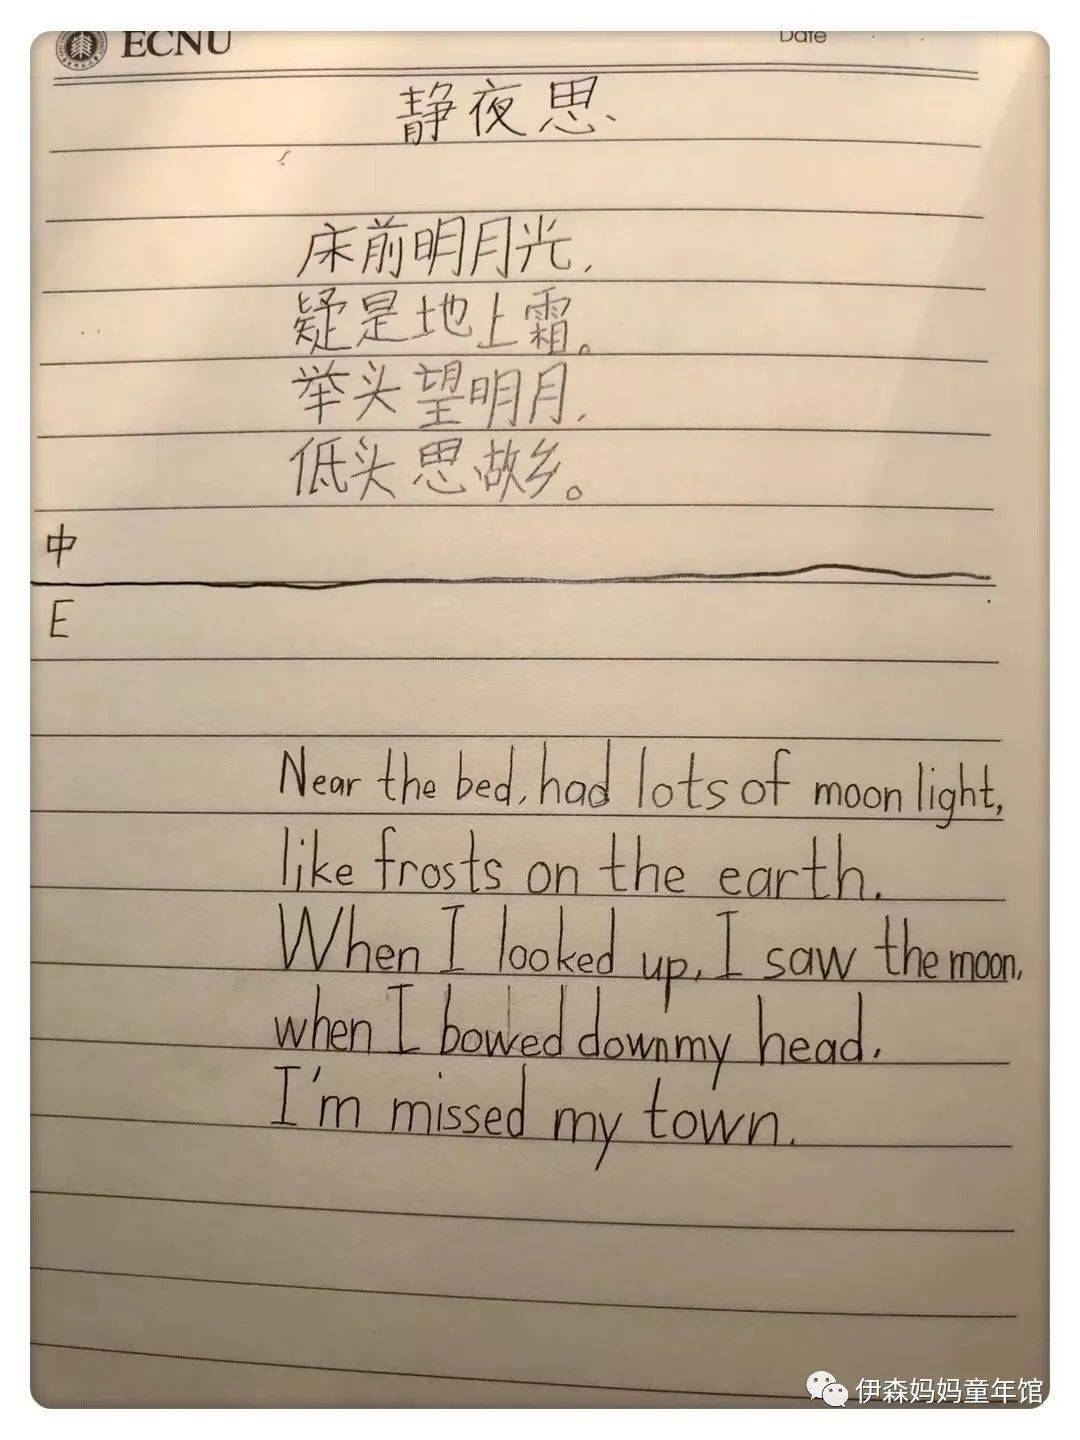 ECNU
Date
静夜思
床前明月光,
疑是地上霜。
举头望明月,
低头思故乡。
中
E
Near the bed, had lots of moon light,
like frosts on the earth.
When I looked up, I saw the moon,
when I bowed down my head,
I'm missed my town.
伊森妈妈童年馆